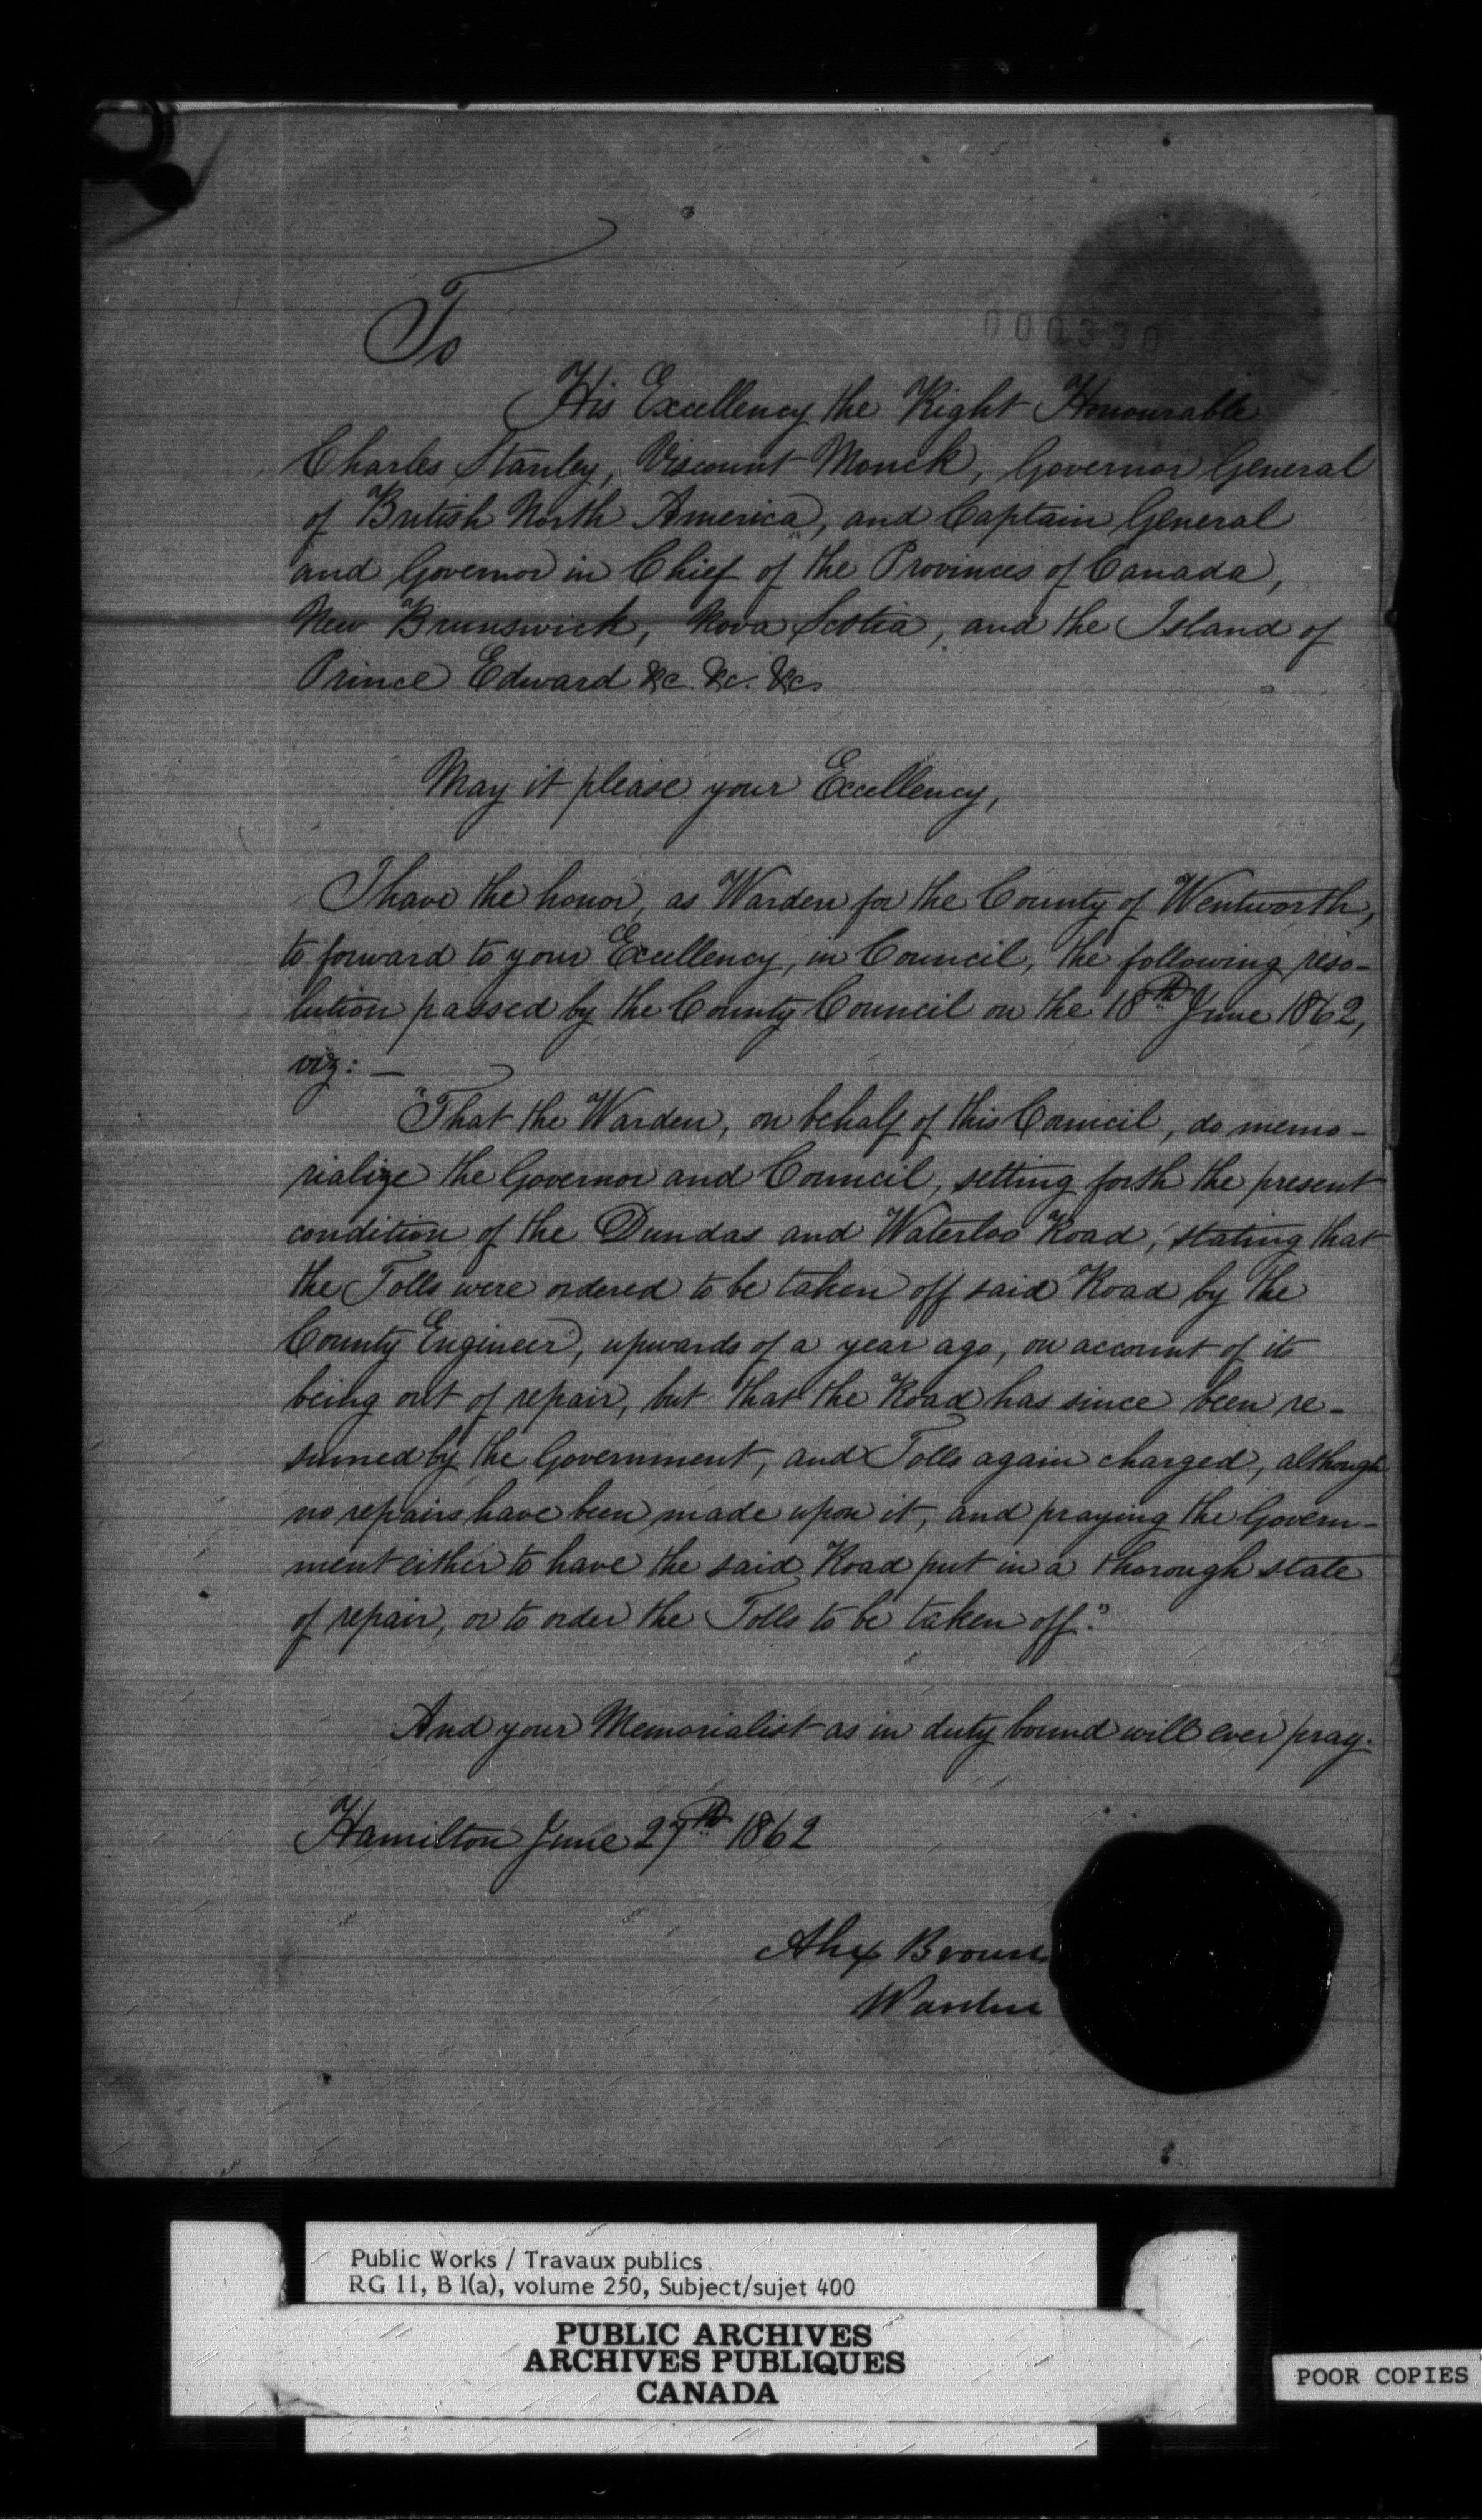 000330
To
His Excellency the Right Honourable
Charles Stanley, Viscount Monck, Governor General
of British North America, and Captain General
and Governor in Chief of the Provinces of Canada,
New Brunswick, Nova Scotia, and the Island of
Prince Edward &c. &c. &c.
May it please your Excellency,
I have the honor, as Warden for the County of Wentworth,
to forward to your Excellency, in Council, the following reso-
lution passed by the County Council on the 18th June 1862,
viz: —
"That the Warden, on behalf of this Council, do memo-
rialize the Governor and Council, setting forth the present
condition of the Dundas and Waterloo Road, stating that
the Tolls were ordered to be taken off said Road by the
County Engineer, upwards of a year ago, on account of its
being out of repair, but that the Road has since been re-
sumed by the Government, and Tolls again charged, although
no repairs have been made upon it, and praying the Govern-
ment either to have the said Road put in a thorough state
of repair, or to order the Tolls to be taken off."
And your Memorialist as in duty bound will ever pray.
Hamilton June 27th 1862
Alex Brown
Warden
Public Works / Travaux publics
RG 11, B 1(a), volume 250, Subject/sujet 400
PUBLIC ARCHIVES
ARCHIVES PUBLIQUES
CANADA
POOR COPIES